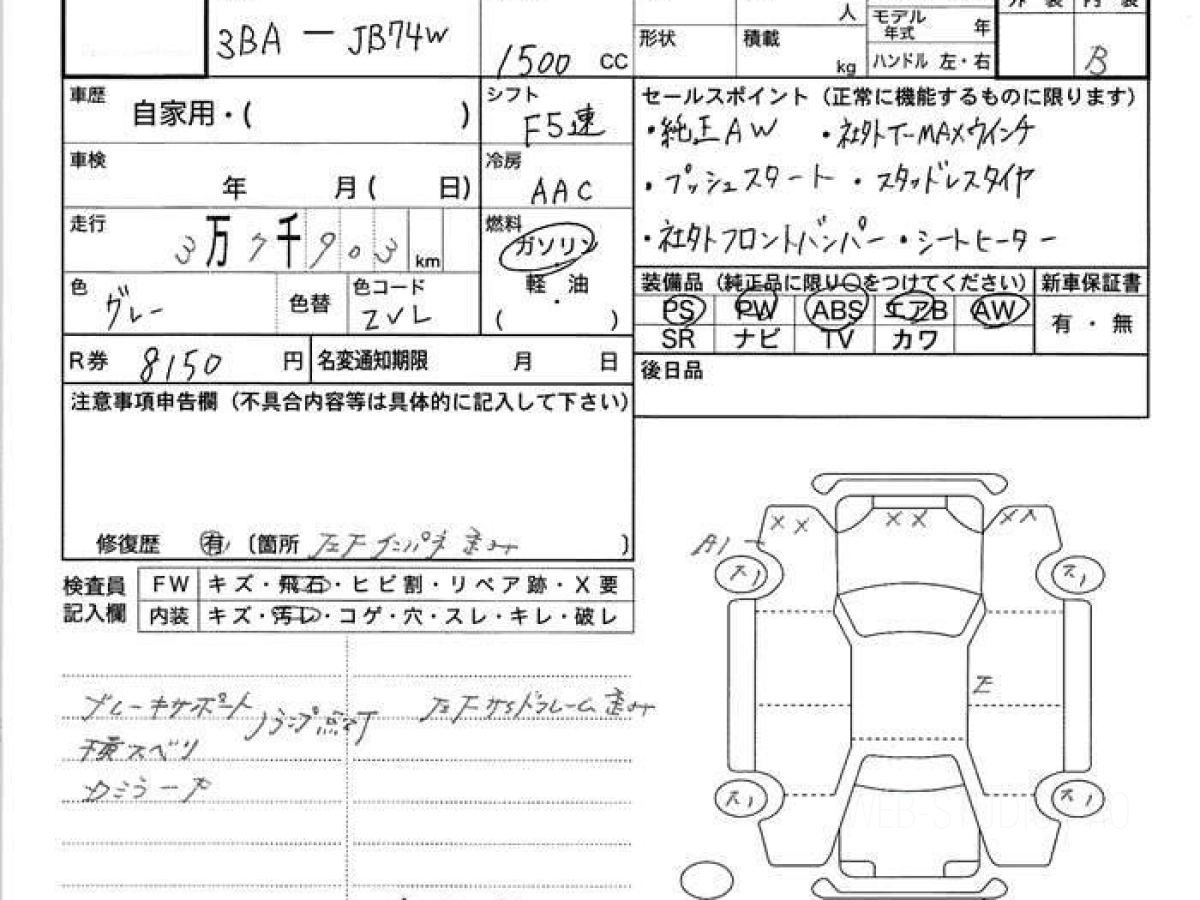 3BA - JB74W
1500 cc
人
形状
積載
kg
モデル
年式
年
ハンドル 左・右
B
車歴 自家用・( )
シフト
F5速
車検
年 月( 日)
冷房
AAC
走行
3万7千903 km
燃料
ガソリン
軽・油
( )
色
グレー
色替
色コード
ZVL
R券 8150 円
名変通知期限 月 日
セールスポイント(正常に機能するものに限ります)
・純正AW ・社外T-MAXウインチ
・プッシュスタート ・スタッドレスタイヤ
・社外フロントバンパー ・シートヒーター
装備品(純正品に限り○をつけてください)
新車保証書
PS PW ABS エアB AW
有・無
SR ナビ TV カワ
後日品
注意事項申告欄(不具合内容等は具体的に記入して下さい)
修復歴 有 〔箇所 左F インパネ 歪み 〕
検査員
記入欄
FW キズ・飛石・ヒビ割・リペア跡・X要
内装 キズ・汚レ・コゲ・穴・スレ・キレ・破レ
ブレーキサポート
横スベリ
ランプ点灯
XX
XX
A1
E